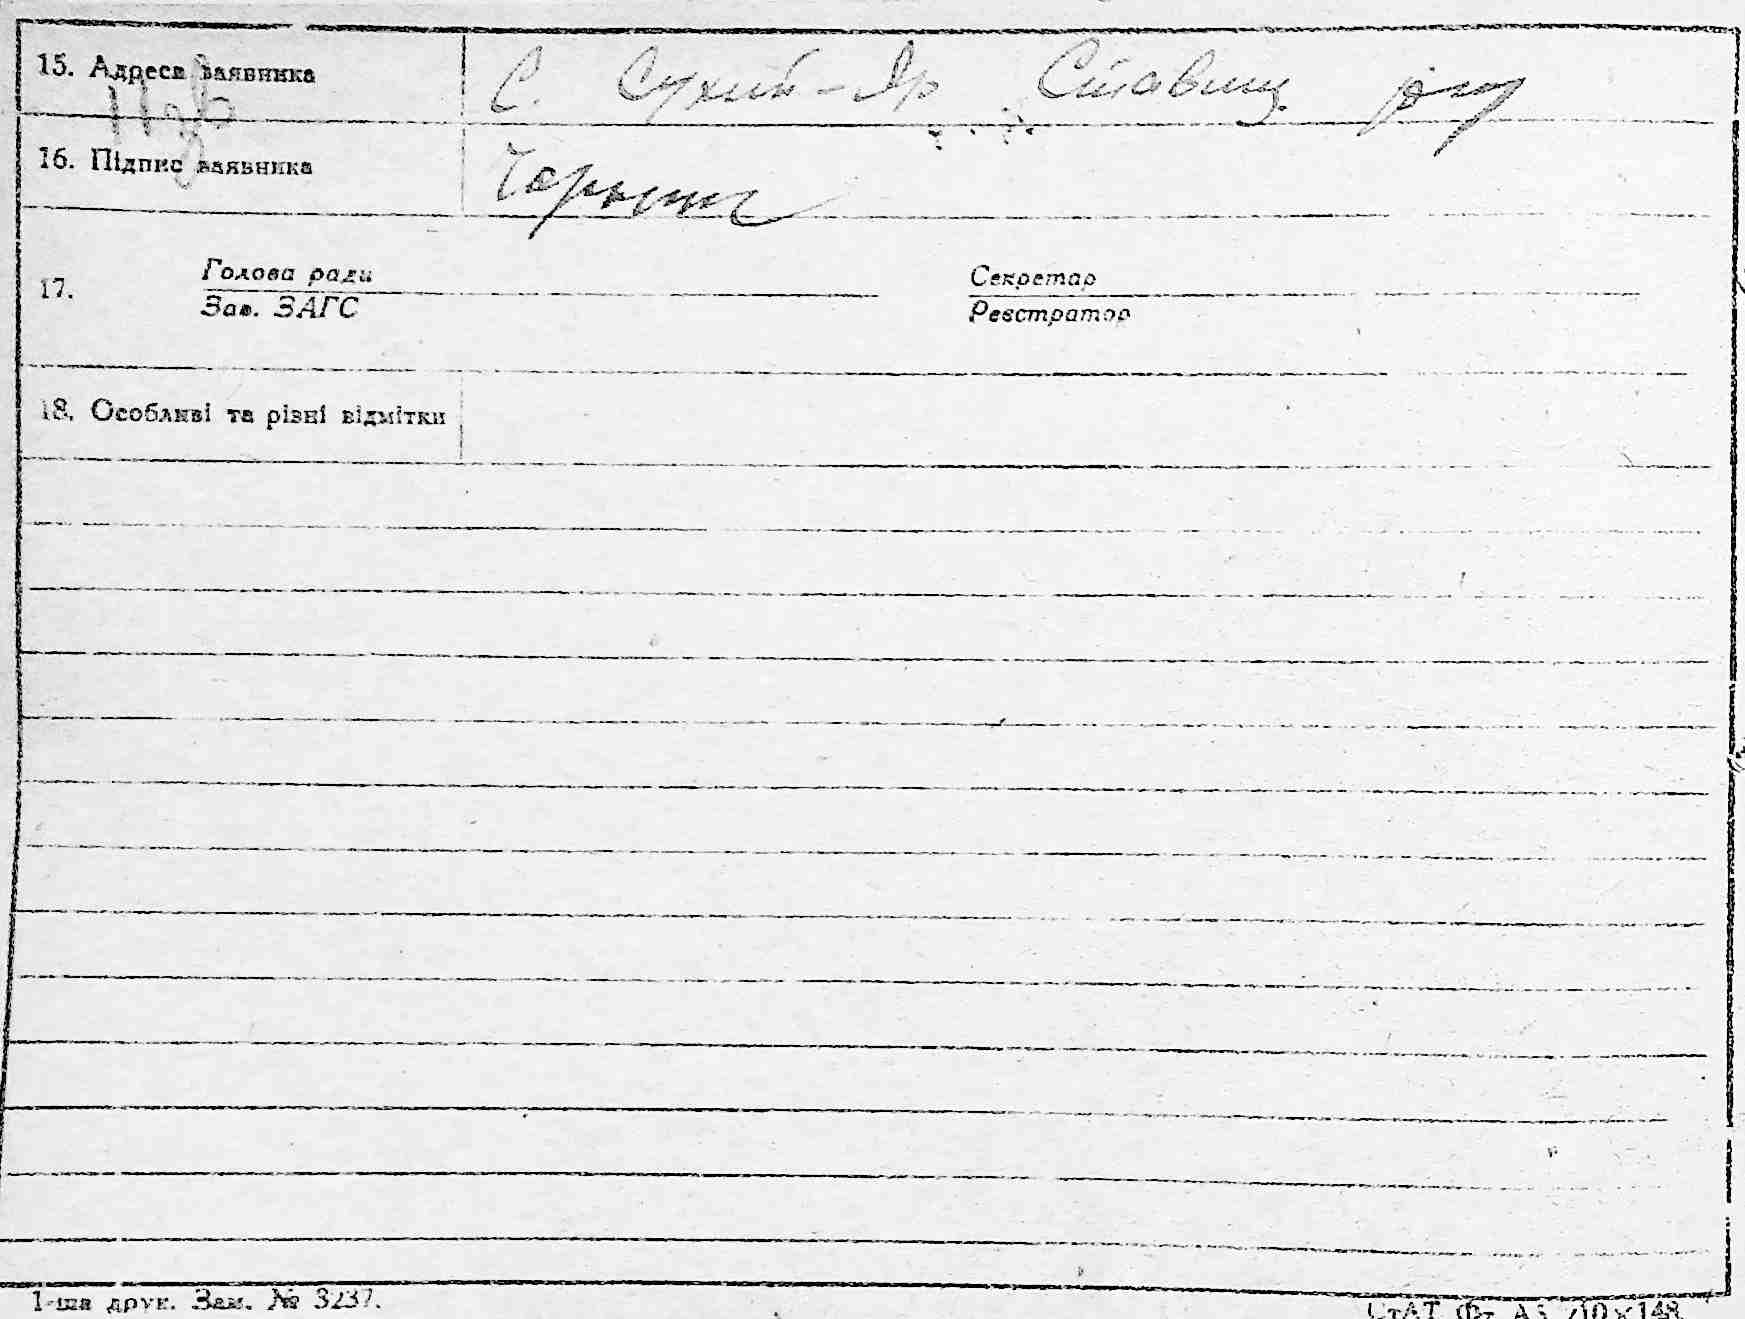 15. Адреса заявника С. Сухий-Яр Ставищ. р-ну
16. Підпис заявника
17. Голова ради Секретар
Зав. ЗАГС Реєстратор
18. Особливі та різні відмітки
1-ша друк. Зам. № 3237.
СтАТ Фт А5 210×148